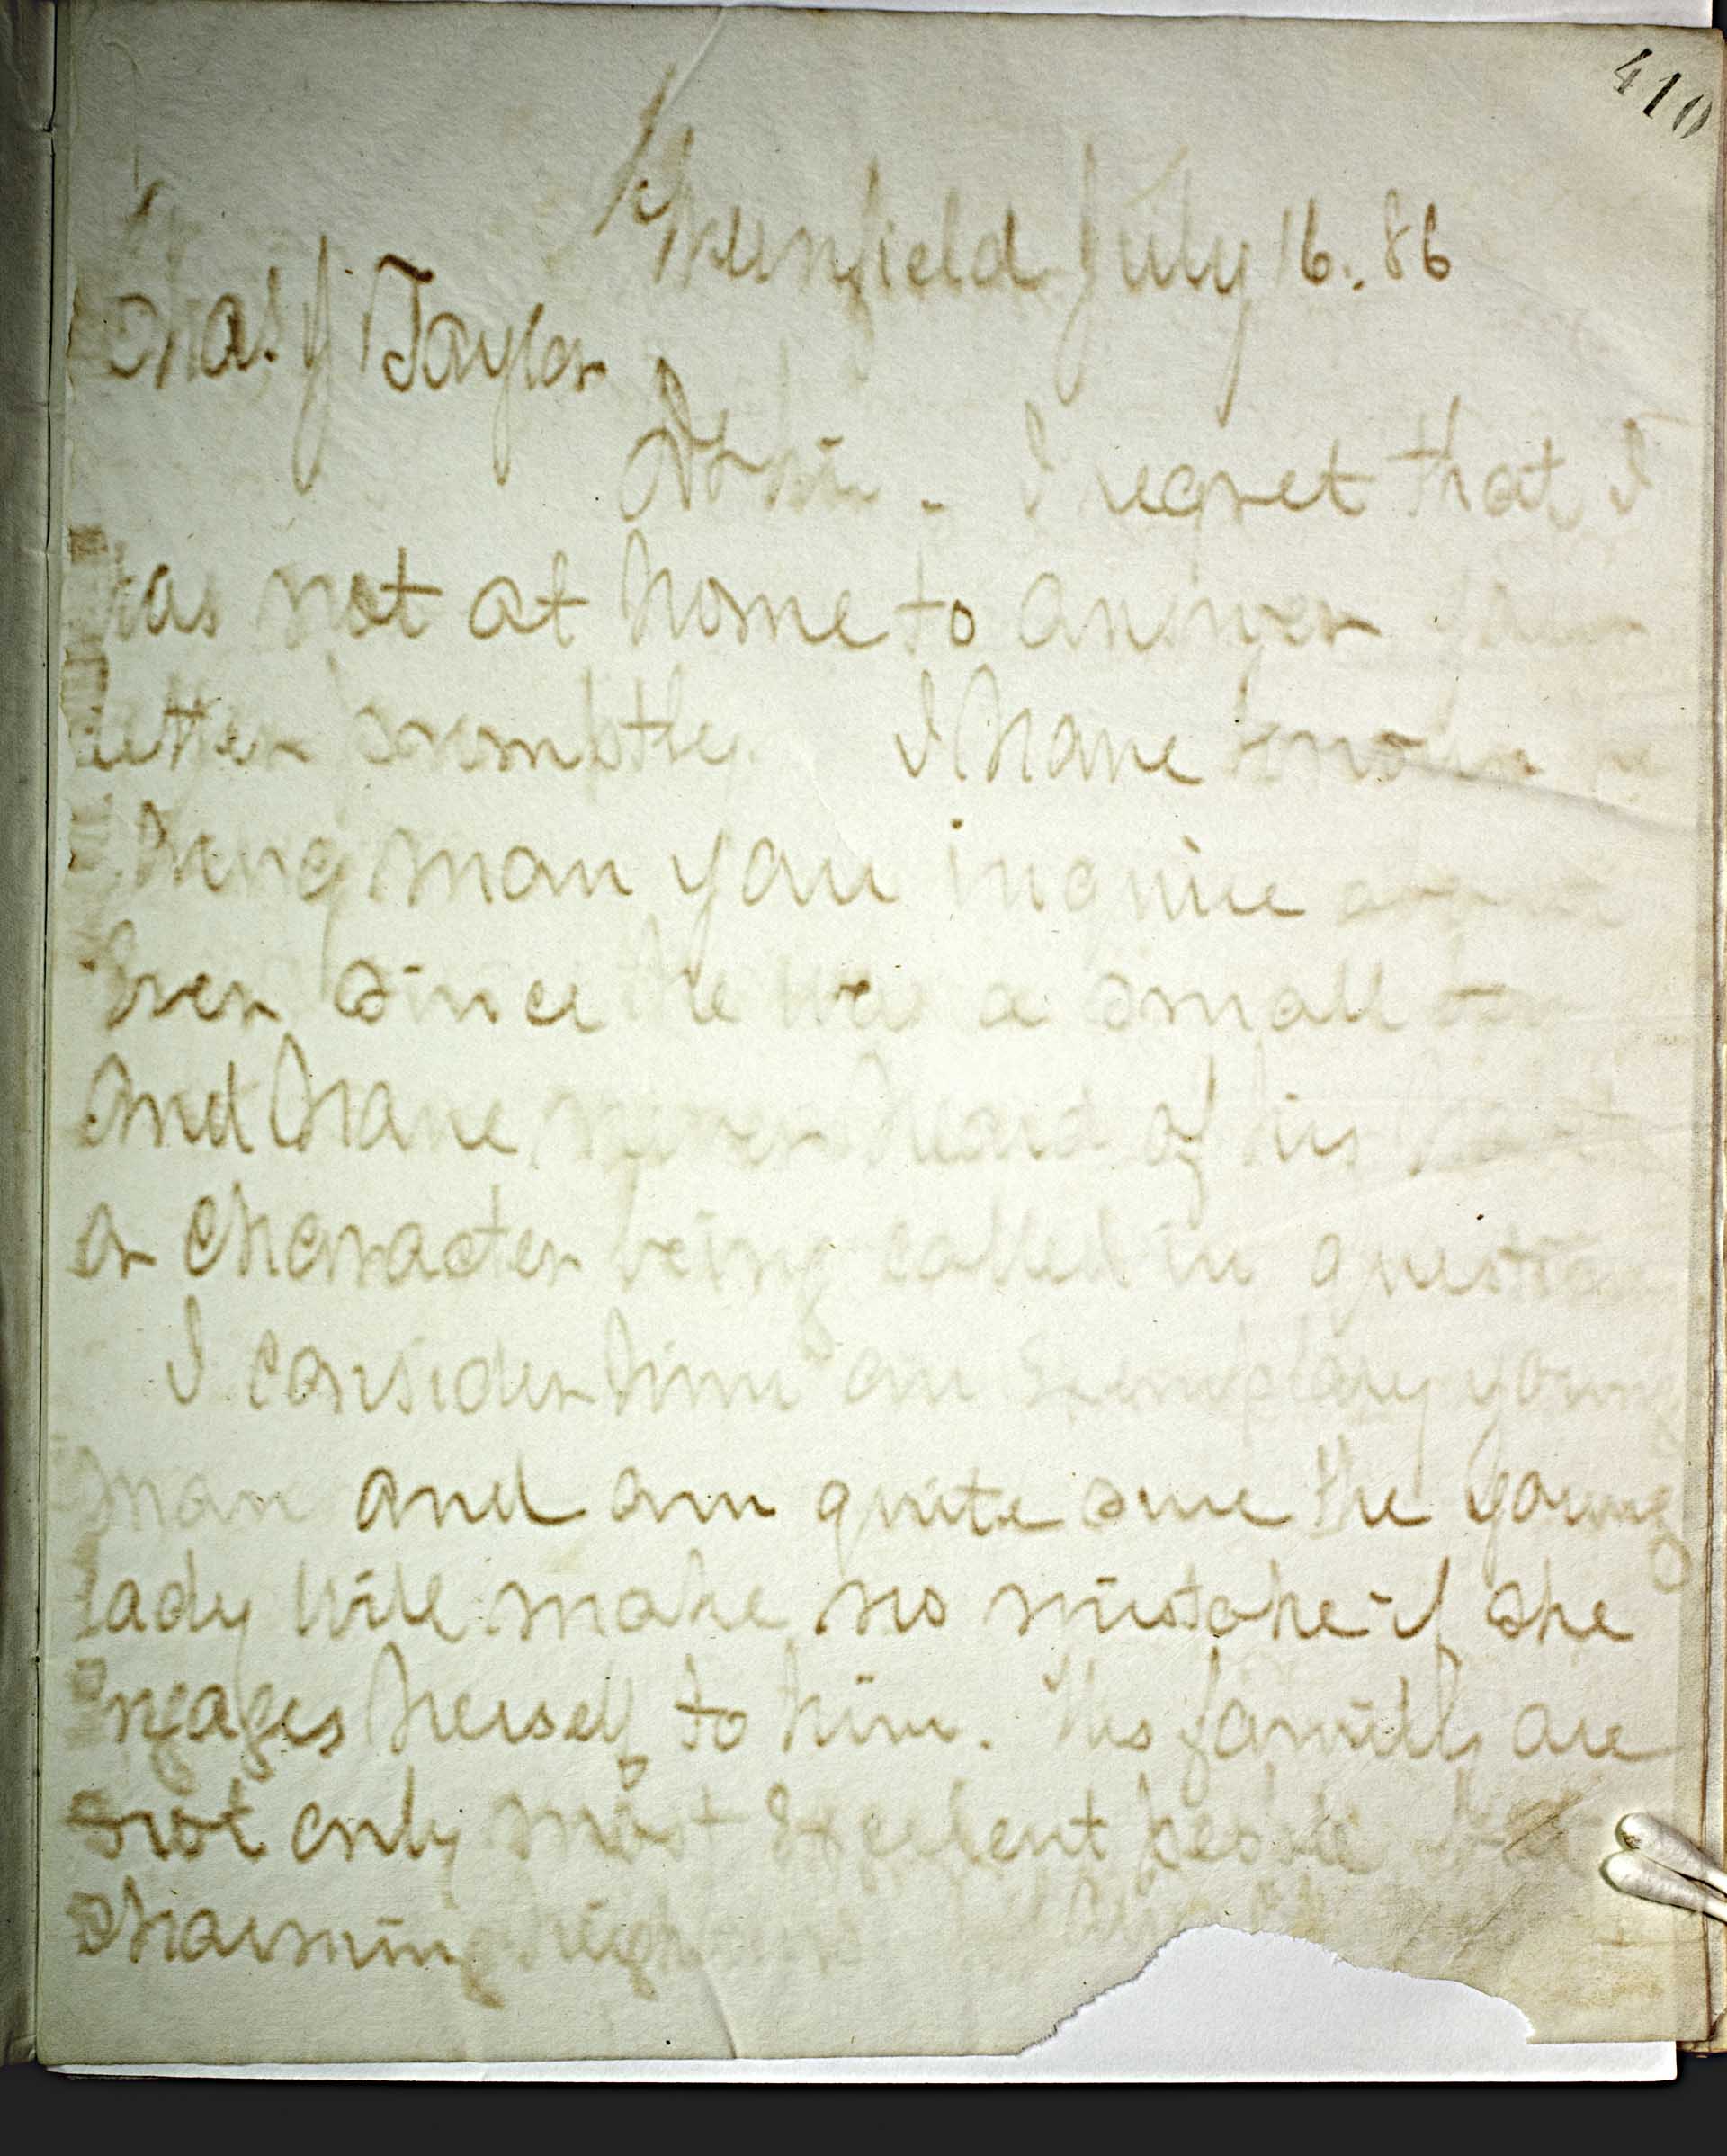 410
Greenfield July 16. 86
Chas. J Taylor
Dr Sir. I regret that I
was not at home to answer your
letter promptly. I have known the
young man you inquire about
Ever since he was a small boy
And have never heard of his
or character being called in question
I consider him an Exemplary young
man and am quite sure the young
lady will make no mistake if she
Engages herself to him. His family are
not only most Excelent people but
charming neighbors